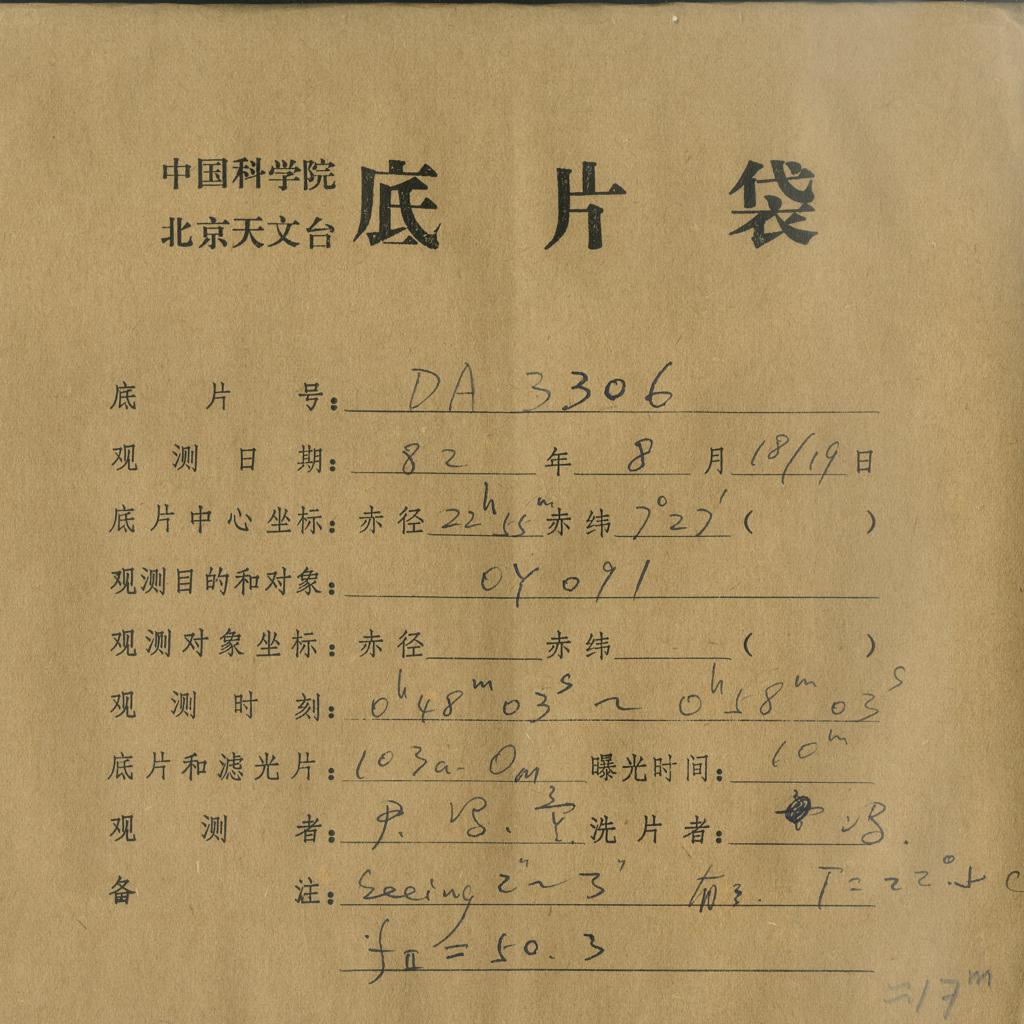 中国科学院
北京天文台
底片袋
底片号: DA 3306
观测日期: 82 年 8 月 18/19 日
底片中心坐标: 赤径 22h 55m 赤纬 7°27′ ( )
观测目的和对象: OY 091
观测对象坐标: 赤径 赤纬 ( )
观测时刻: 0h48m03s ~ 0h58m03s
底片和滤光片: 103a-O 曝光时间: 10m
观测者: 洗片者: 冯.
备注: Seeing 2″~3″ T=22°.5 C
fⅡ = 50.3
17m